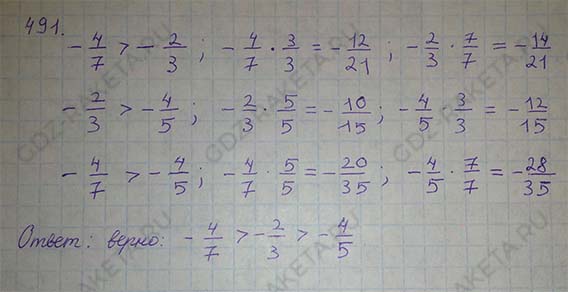 491.
-4/7 > -2/3; -4/7 · 3/3 = -12/21; -2/3 · 7/7 = -14/21
-2/3 > -4/5; -2/3 · 5/5 = -10/15; -4/5 · 3/3 = -12/15
-4/7 > -4/5; -4/7 · 5/5 = -20/35; -4/5 · 7/7 = -28/35
Ответ: верно: -4/7 > -2/3 > -4/5
GDZ-RAKETA.RU